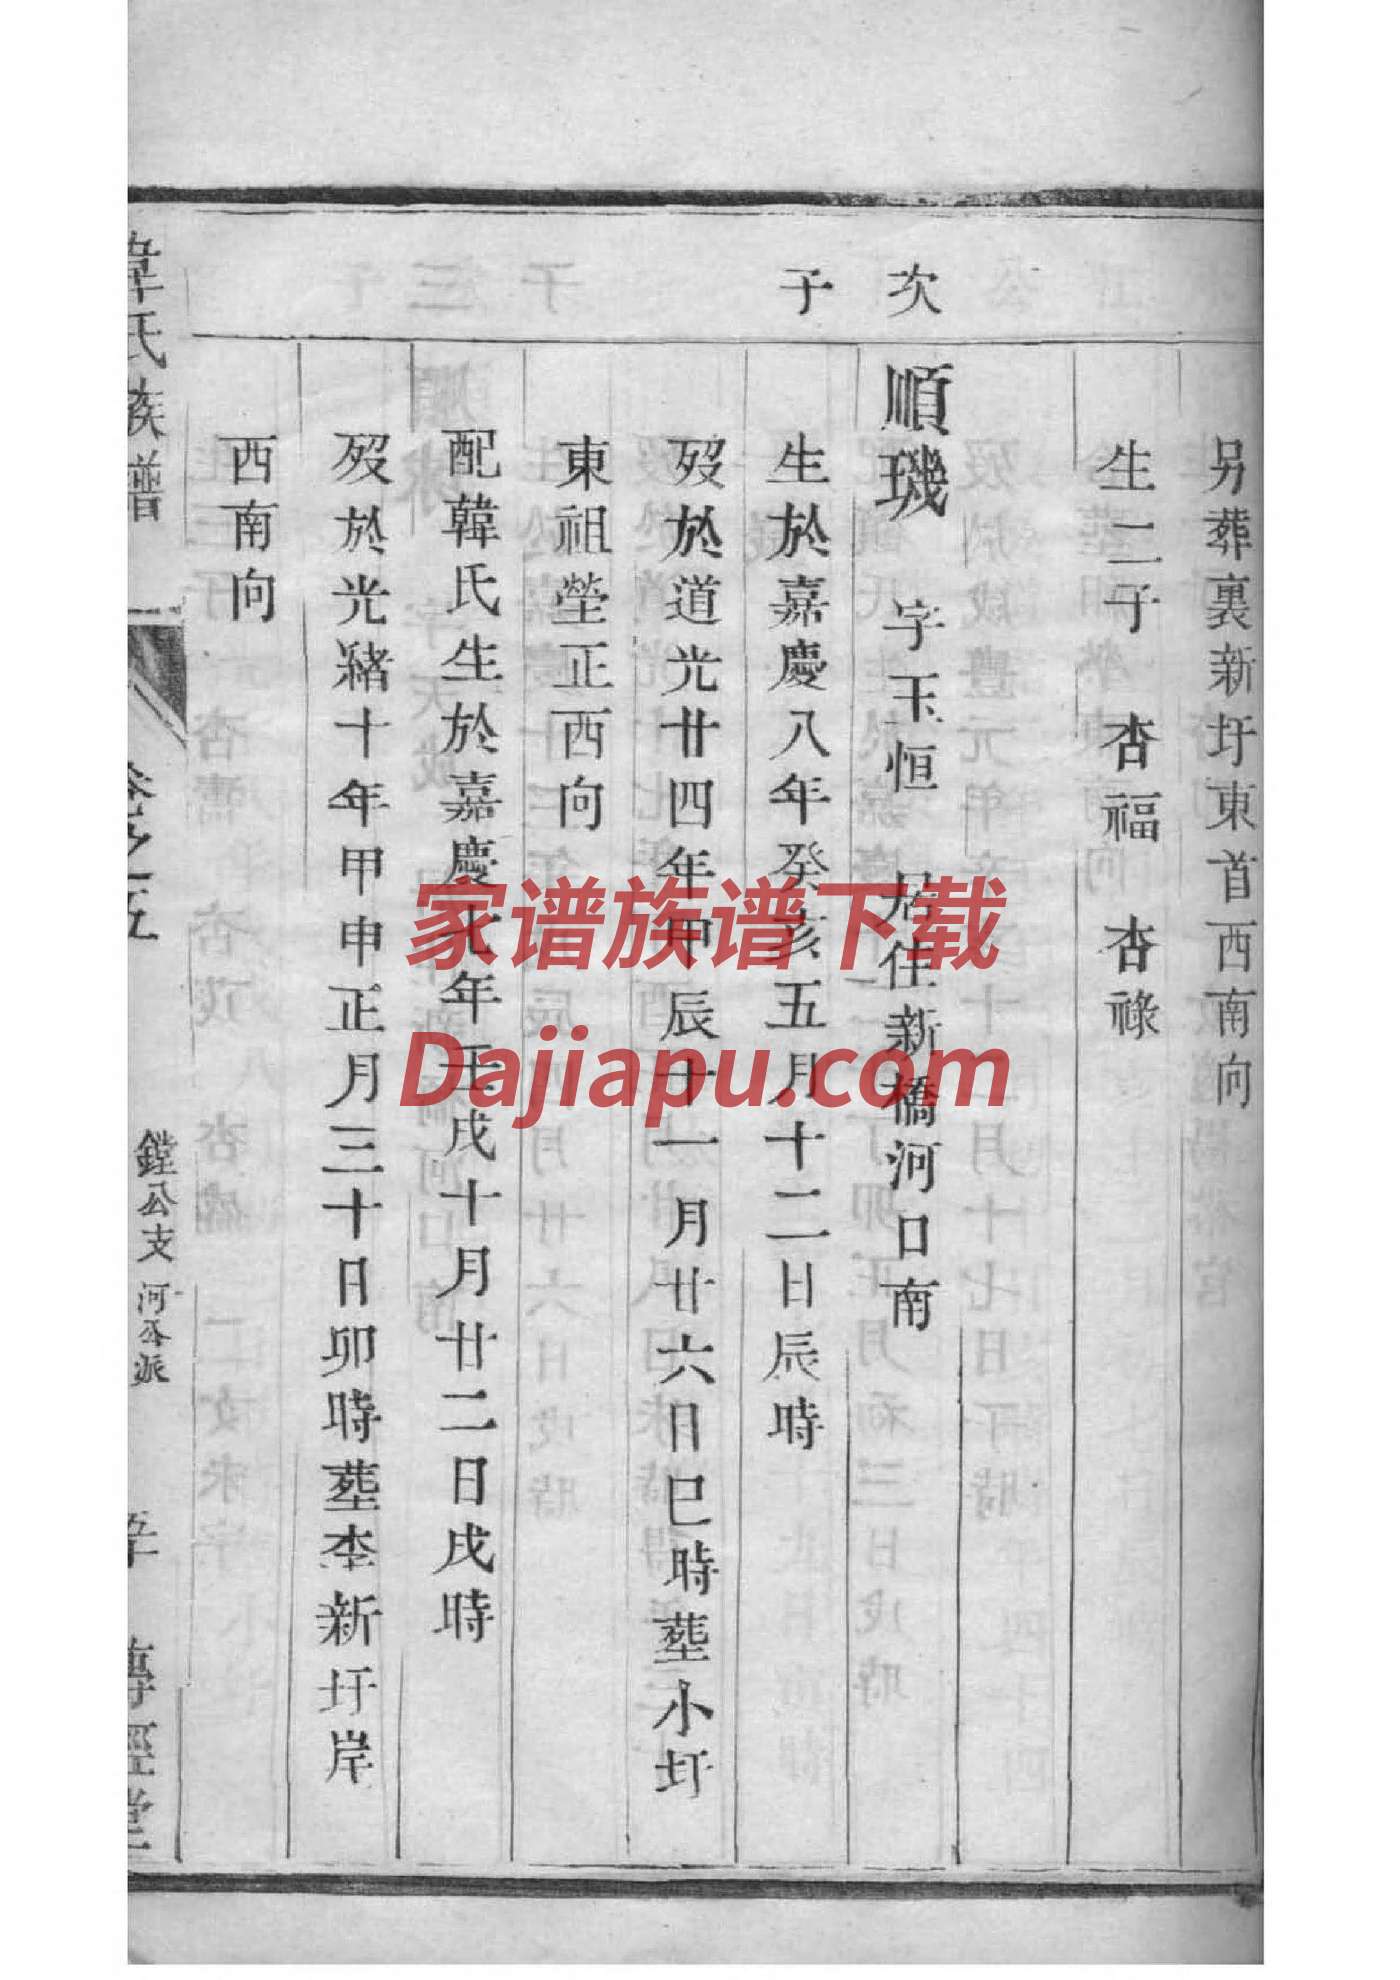 另葬裏新圩東首西南向
生二子 杏福 杏祿
次
順璣 字玉恒 居住新橋河口南
子
生於嘉慶八年癸亥五月十二日辰時
歿於道光廿四年甲辰十一月廿六日巳時葬小圩
東祖塋正西向
配韓氏生於嘉慶七年壬戌十月廿二日戌時
歿於光緒十年甲申正月三十日卯時葬李新圩岸
西南向
韋氏族譜 卷之五 鏜公支 河公派 傳經堂
家谱族谱下载
Dajiapu.com